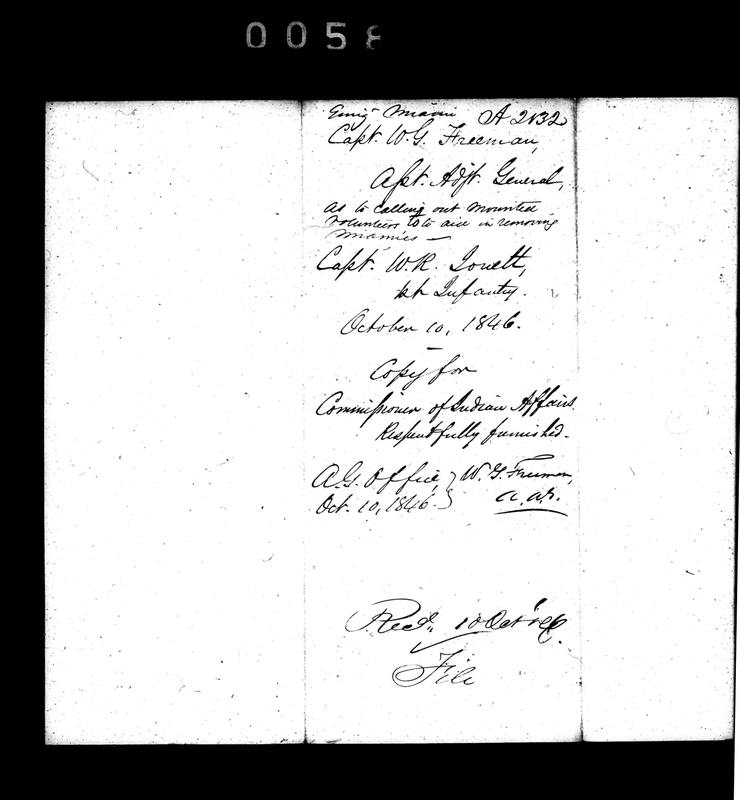 005
Emigⁿ Miami A 2132
Capt. W. G. Freeman,
Asst. Adjt. General,
as to calling out mounted
volunteers to aid in removing
Miamies —
Capt. W. R. Jouett,
1st Infantry.
October 10, 1846.
—
Copy for
Commissioner of Indian Affairs.
Respectfully furnished.
A.G. Office, } W. G. Freeman,
Oct. 10, 1846. } A. A. G.
Recd. 10 Oct '46.
File